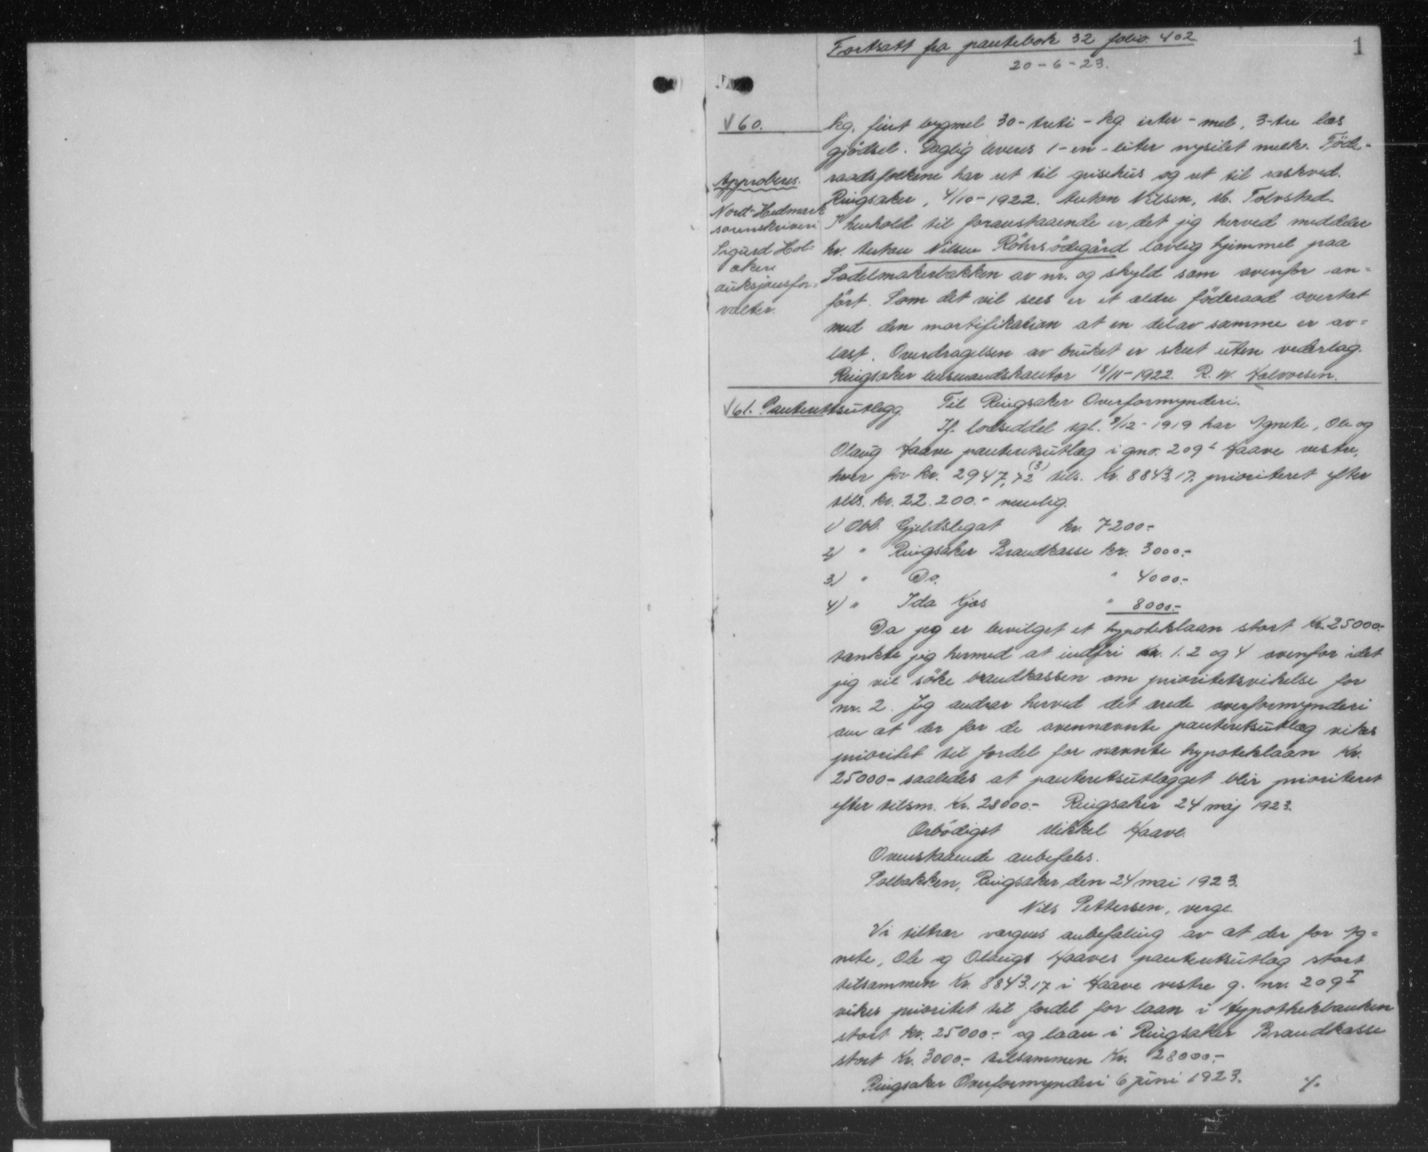 Fortsatt fra pantebok 32 folio 402
1
20-6-23.
V 60.
kg. fint bygmel 30-treti-kg erter-mel, 3-tre las
gjødsel. Daglig leveres 1-en-liter nysilet melk. Føde-
raadsfolkene har ret til grisehus og ret til raskved.
Ringsaker, 4/10-1922. Anton Nilsen, M. Tolvstad.
I henhold til foranstaaende er det jeg herved meddeler
hr. Anton Nilsen Röhrsödegård lovlig hjemmel paa
Sadelmakerbakken av nr. og skyld som ovenfor an-
ført. Som det vil sees er et ældre føderaad overtat
med den mortifikation at en del av samme er av-
løst. Overdragelsen av bruket er skeet uten vederlag.
Ringsaker lensmandskontor 18/11-1922. R. W. Halvorsen.
Approberes.
Nord-Hedmark
sorenskriveri
Sigurd Hol-
aker
auksjonsfor-
valter.
V 61. Panteretsutlegg
Til Ringsaker Overformynderi.
If. lodseddel tgl. 9/12-1919 har Agnete, Ole og
Olaug Haave panteretsutlæg i gnr. 209 I Haave vestre,
hver for kr. 2947,72 (3) tils. Kr. 8843.17. prioritert efter
tils. kr. 22.200.- nemlig.
1) Obl. Gjeldslegat kr. 7200.-
2) " Ringsaker Brandkasse kr. 3000.-
3) " Do. " 4000.-
4) " Ida Kjos " 8000.-
Da jeg er bevilget et hypoteklaan stort Kr. 25000.-
tænkte jeg hermed at indfri nr. 1. 2 og 4 ovenfor idet
jeg vil søke brandkassen om prioritetsvikelse for
nr. 2. Jeg andrar herved det ærede overformynderi
om at der for de ovennævnte panteretsutlæg vikes
prioritet til fordel for nævnte hypoteklaan Kr.
25000.- saaledes at panteretsutlægget blir prioriteret
efter tilsm. Kr. 28000.- Ringsaker 24 maj 1923.
Ærbødigst Mikkel Haave.
Ovenstaaende anbefales.
Solbakken, Ringsaker, den 24 mai 1923.
Nils Pettersen, verge
Vi tiltrær vergens anbefaling av at der for Ag-
nete, Ole og Olaugs Haaves panteretsutlæg stort
tilsammen Kr. 8843.17 i Haave vestre g. nr. 209 I
vikes prioritet til fordel for laan i Hypothekbanken
stort kr. 25000.- og laan i Ringsaker Brandkasse
stort Kr. 3000.- tilsammen Kr. 28000.-
Ringsaker Overformynderi 6 juni 1923. ./.